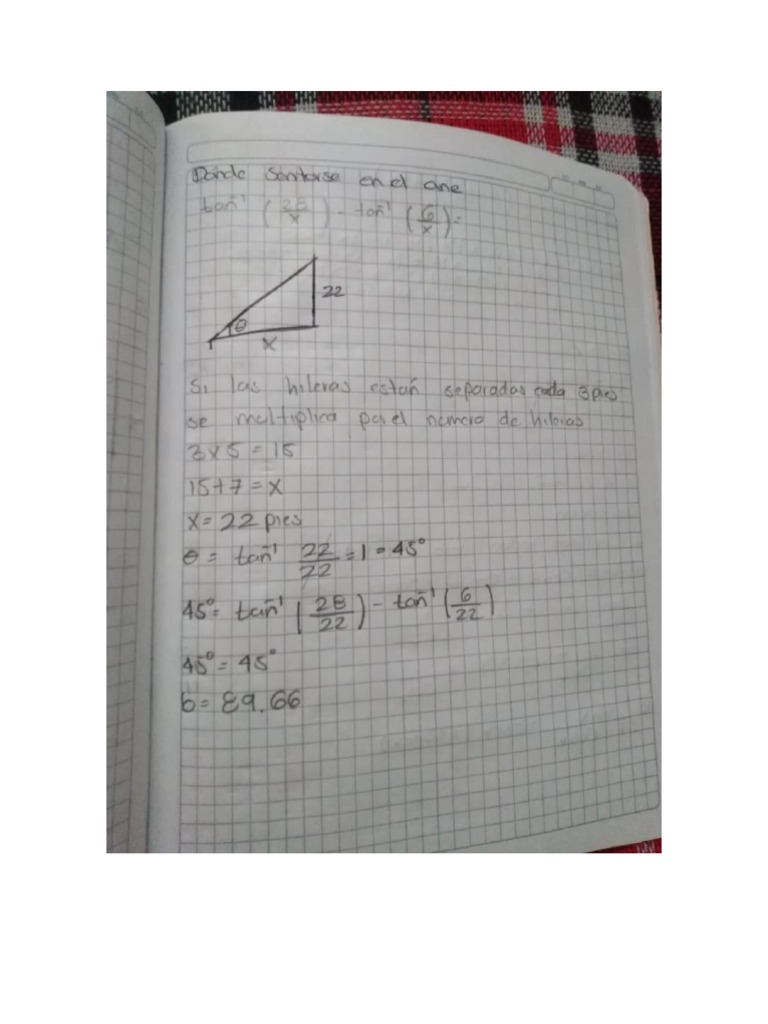 Donde Sentarse en el cine
tan⁻¹ (28/x) - tan⁻¹ (6/x) =
22
θ
x
Si las hileras están separadas cada 3 pies
se multiplica por el numero de hileras
3 x 5 = 15
15 + 7 = x
x = 22 pies
θ = tan⁻¹ 22/22 = 1 = 45°
45° = tan⁻¹ (28/22) - tan⁻¹ (6/22)
45° = 45°
b = 89.66